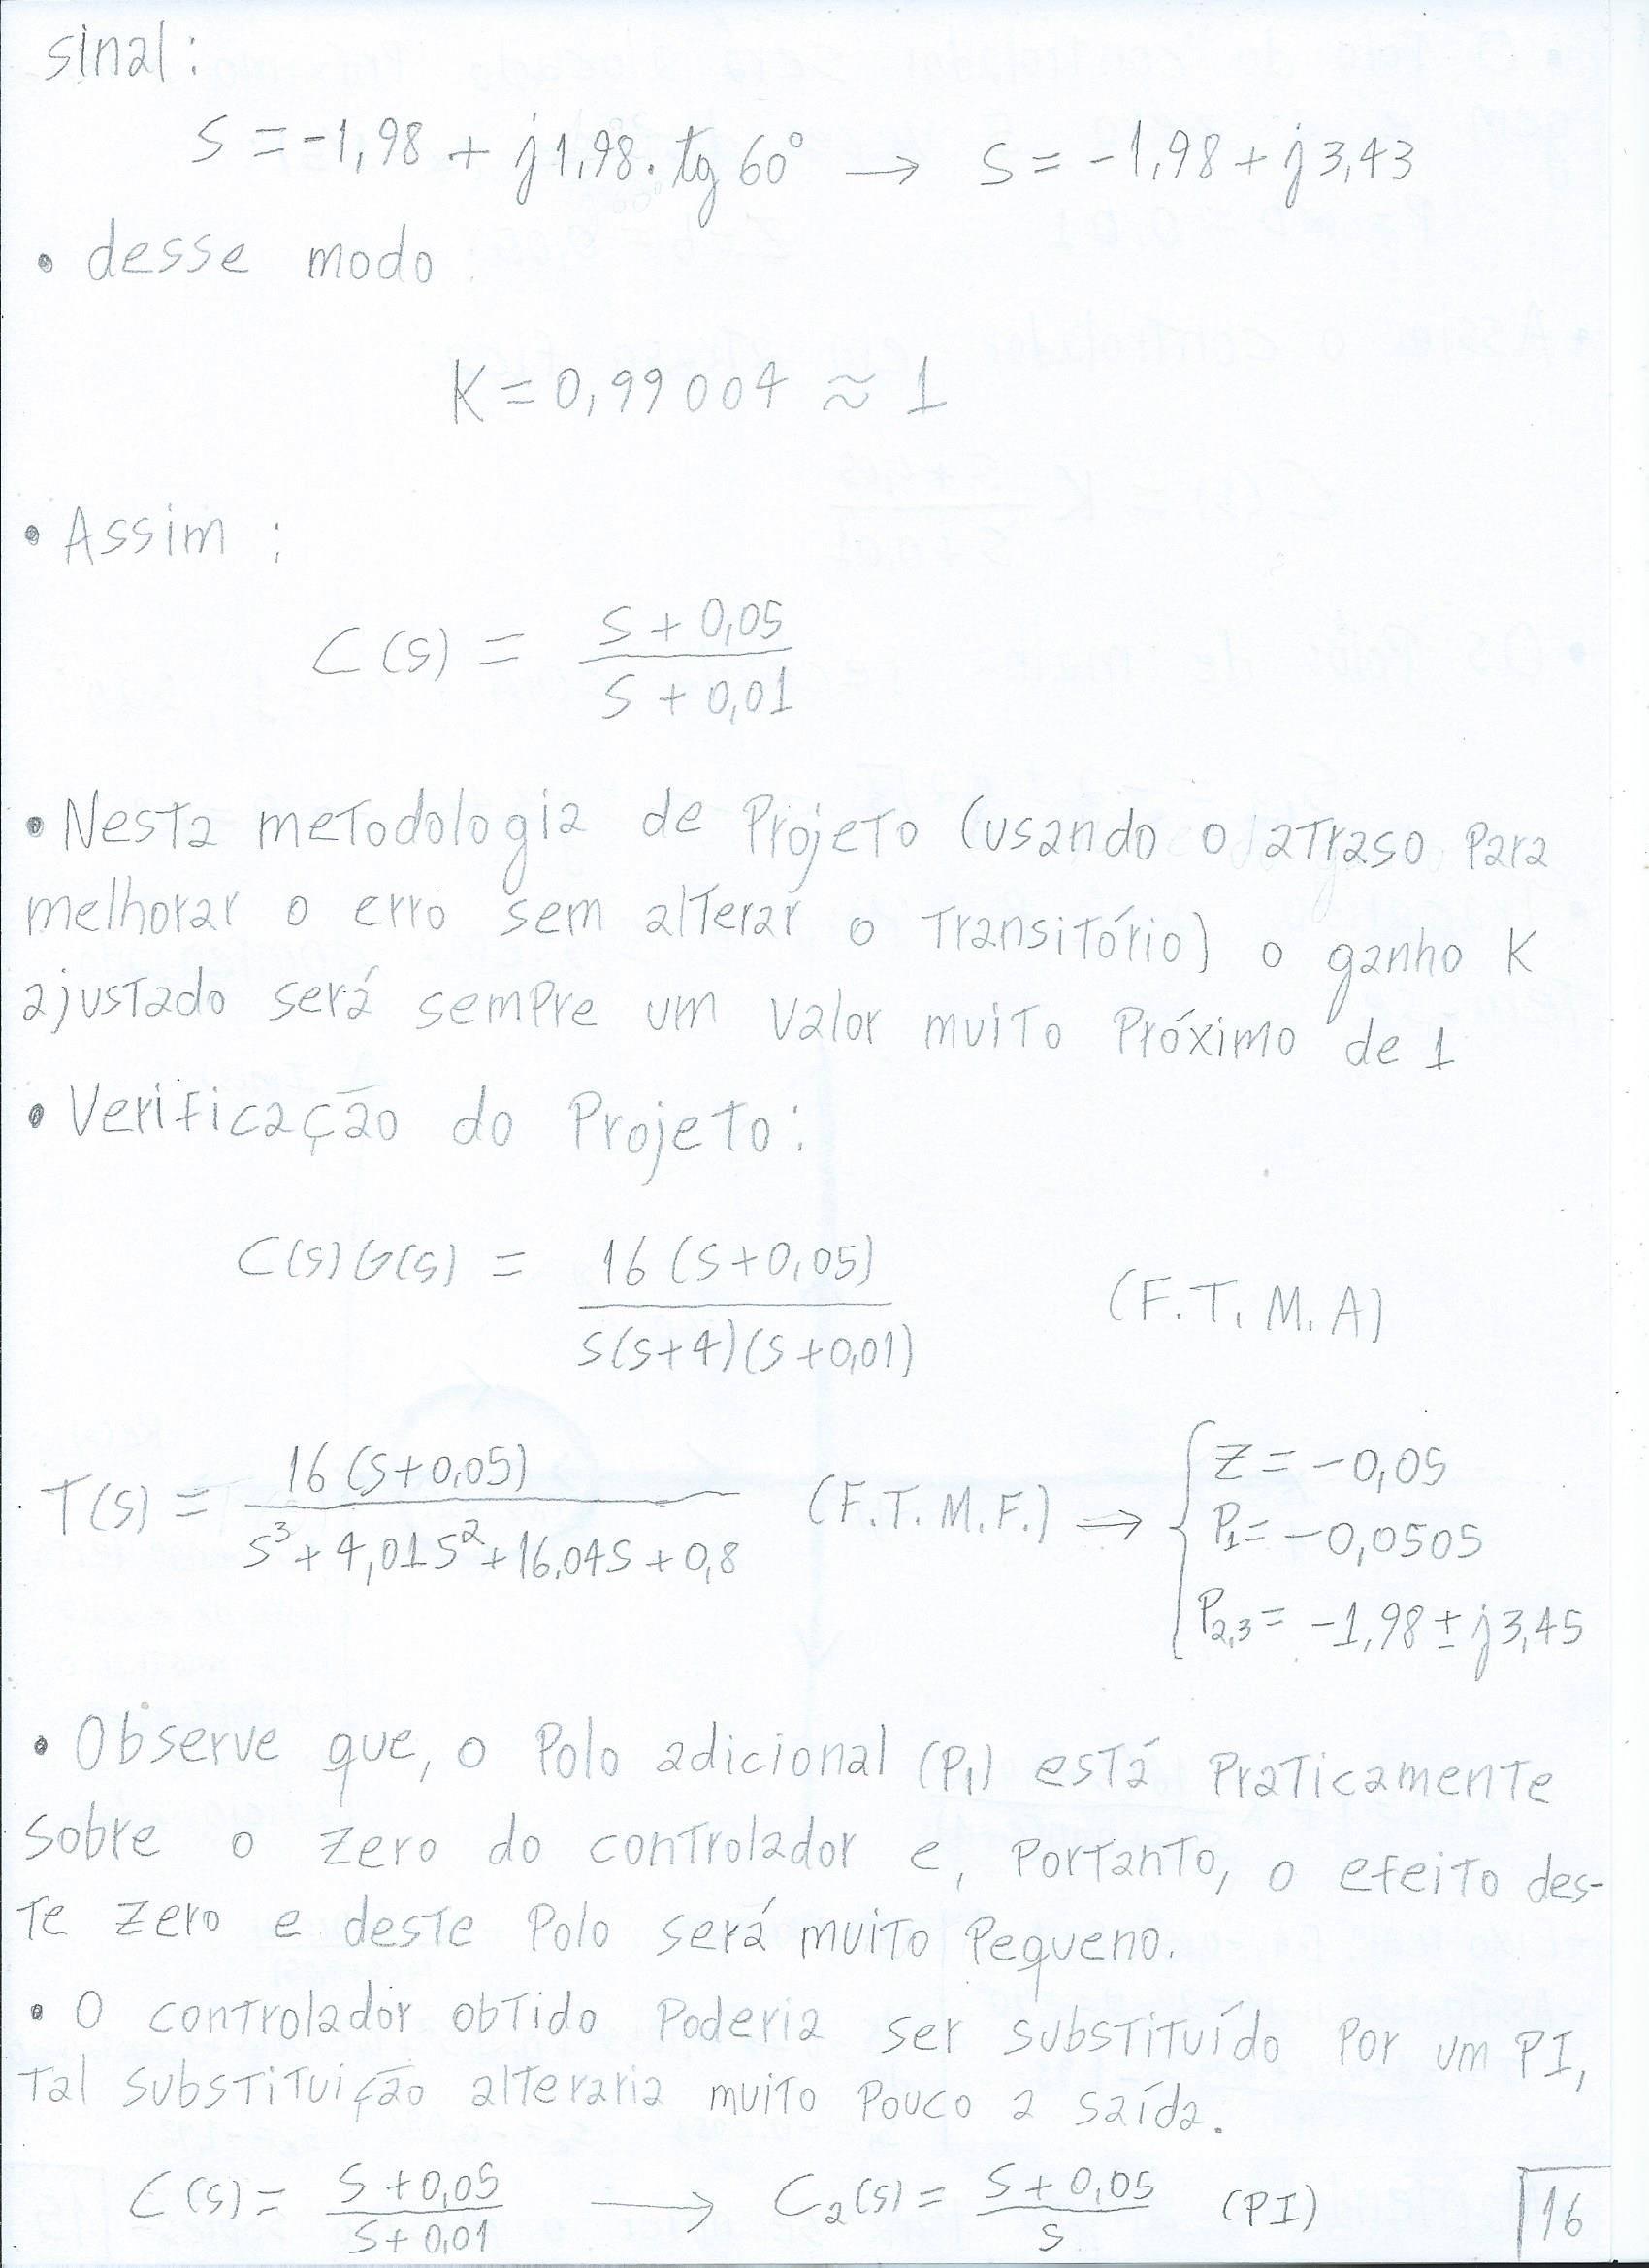 sinal:
S = -1,98 + j1,98 . tg 60° → S = -1,98 + j3,43
• desse modo
K = 0,99004 ≈ 1
• Assim :
C(s) = (S + 0,05) / (S + 0,01)
• Nesta metodologia de Projeto (usando o atraso Para
melhorar o erro sem alterar o Transitório) o ganho K
ajustado será sempre um valor muito Próximo de 1
• Verificação do Projeto:
C(s)G(s) = 16(S+0,05) / S(S+4)(S+0,01) (F.T.M.A)
T(s) = 16(S+0,05) / S³ + 4,01S² + 16,04S + 0,8 (F.T.M.F.) ⇒ { Z = -0,05
P1 = -0,0505
P2,3 = -1,98 ± j3,45
• Observe que, o Polo adicional (P1) está Praticamente
sobre o zero do controlador e, Portanto, o efeito des-
te zero e deste Polo será muito Pequeno.
• O controlador obtido Poderia ser substituído Por um PI,
Tal substituição alteraria muito Pouco a saída.
C(s) = (S + 0,05) / (S + 0,01) → C2(s) = (S + 0,05) / S (PI)
16